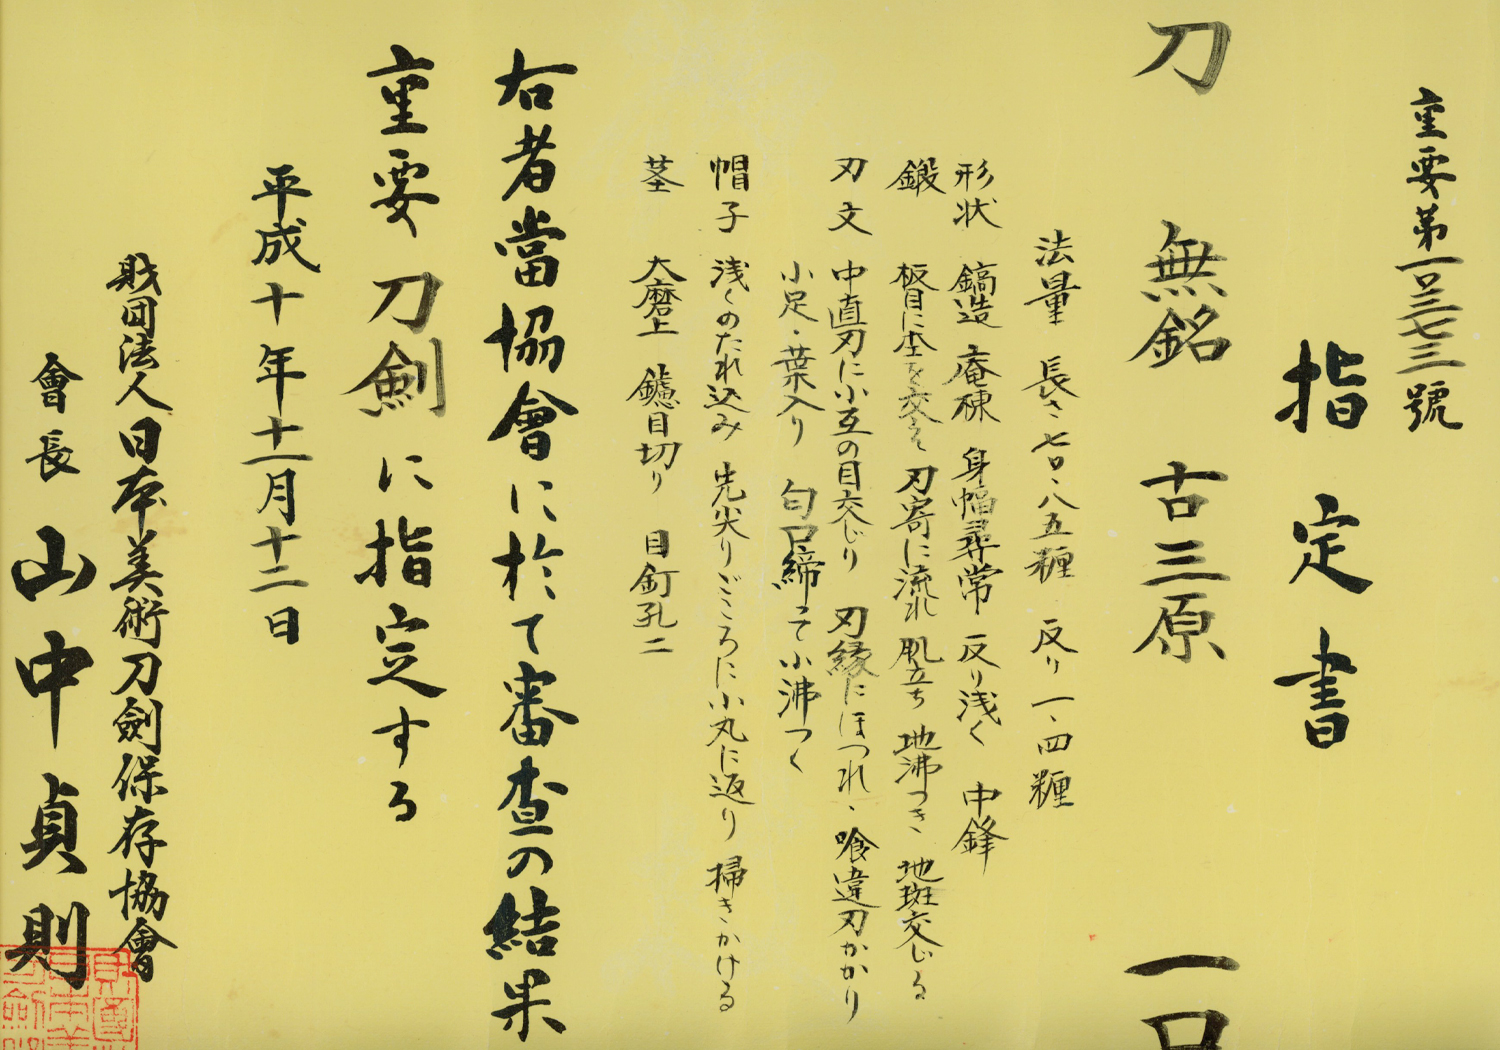 重要第一〇三七三號
指定書
刀 無銘 古三原 一口
法量 長さ七〇・八五糎 反り一・四糎
形状 鎬造 庵棟 身幅尋常 反り浅く 中鋒
鍛 板目に杢を交え 刃寄に流れ 肌立ち 地沸つき 地斑交じる
刃文 中直刃に小互の目交じり 刃縁にほつれ・喰違刃かかり
小足・葉入り 匂口締って小沸つく
帽子 浅くのたれ込み 先尖りごころに小丸に返り 掃きかける
茎 大磨上 鑢目切り 目釘孔二
右者當協會に於て審査の結果
重要刀劍に指定する
平成十年十一月十二日
財団法人日本美術刀劍保存協會
會長 山中貞則